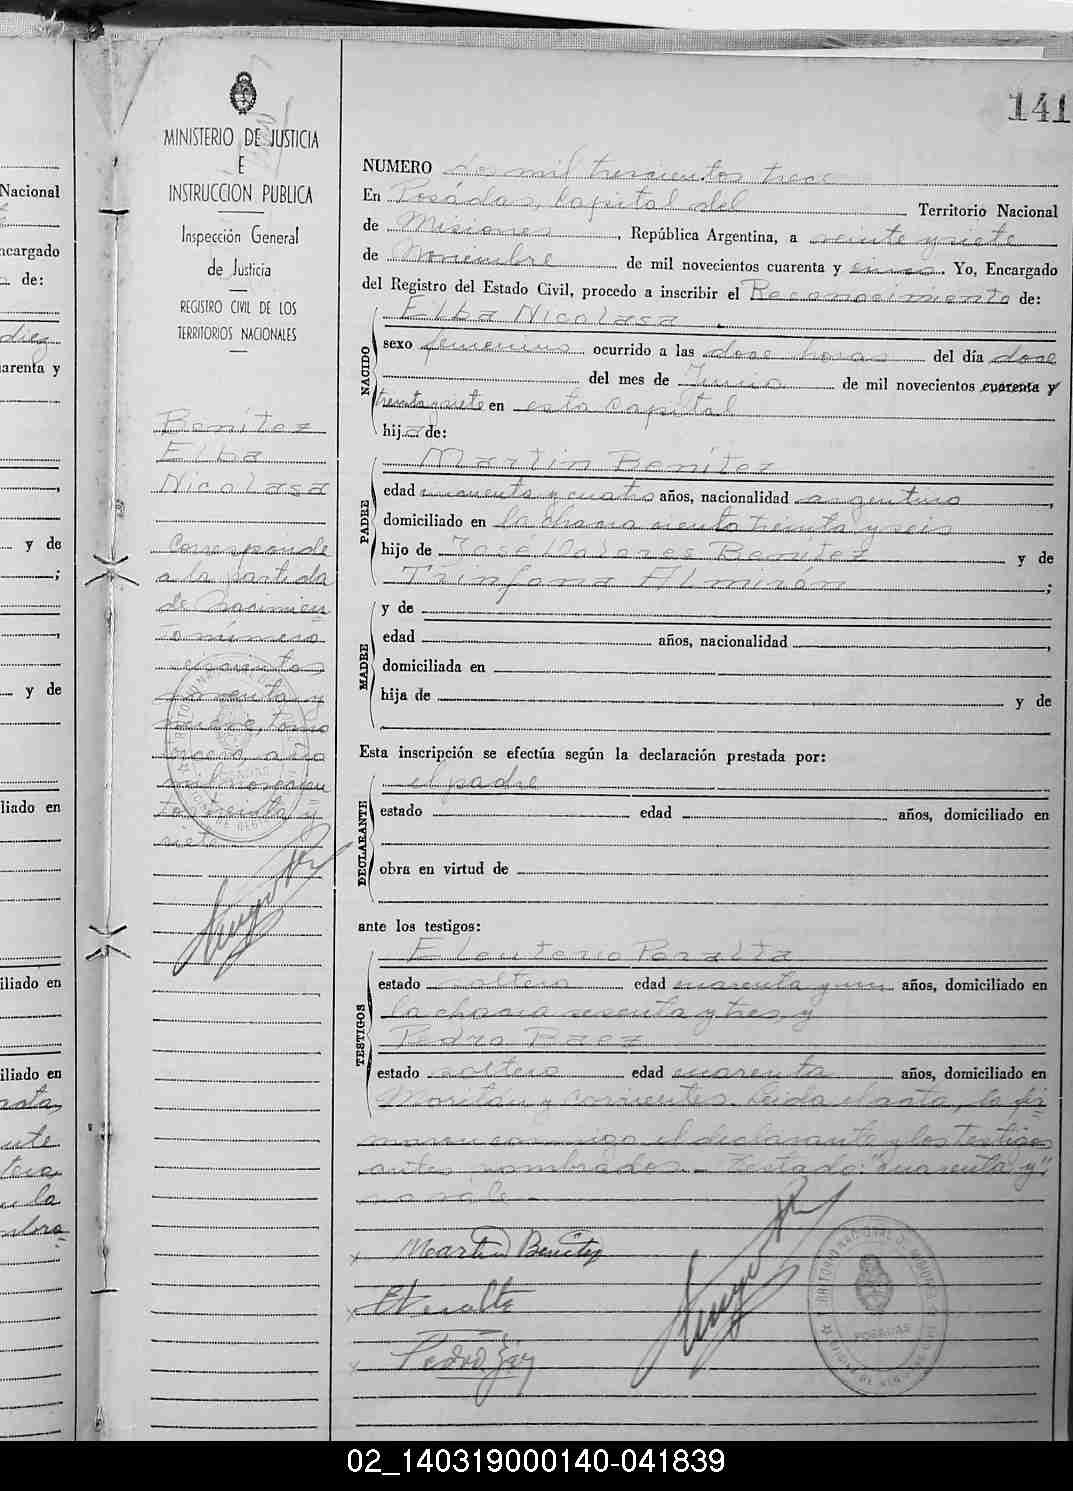 141
MINISTERIO DE JUSTICIA
E
INSTRUCCION PUBLICA
Inspección General
de Justicia
REGISTRO CIVIL DE LOS
TERRITORIOS NACIONALES
Benítez
Elba
Nicolasa
Corresponde
a la partida
de Nacimien
to número
cuarenta y
tomo
año
mil novecien
tos treinta y
siete
NUMERO dos mil trescientos trece
En Posadas, Capital del Territorio Nacional
de Misiones, República Argentina, a veinte y siete
de Noviembre de mil novecientos cuarenta y cinco. Yo, Encargado
del Registro del Estado Civil, procedo a inscribir el Reconocimiento de:
NACIDO
Elba Nicolasa
sexo femenino ocurrido a las doce horas del día doce
del mes de Junio de mil novecientos cuarenta y
treinta y siete en esta Capital
hija de:
PADRE
Martin Benítez
edad cuarenta y cuatro años, nacionalidad argentino,
domiciliado en la chacra ciento treinta y seis
hijo de José Dolores Benítez y de
Almirón;
MADRE
y de
edad años, nacionalidad,
domiciliada en
hija de y de
Esta inscripción se efectúa según la declaración prestada por:
DECLARANTE
el padre
estado edad años, domiciliado en
obra en virtud de
ante los testigos:
TESTIGOS
Eleuterio Peralta
estado soltero edad cuarenta y un años, domiciliado en
la chacra sesenta y tres y
Pedro Baez
estado soltero edad cuarenta años, domiciliado en
y Corrientes. Leída el acta, la fir
maron conmigo el declarante y los testigos
antes nombrados.- Testado: "cuarenta y"
no vale.-
Martin Benitez
E Peralta
Pedro
POSADAS
Nacional
ncargado
de:
diez
arenta y
y de
;
y de
iliado en
iliado en
iliado en
02_140319000140-041839